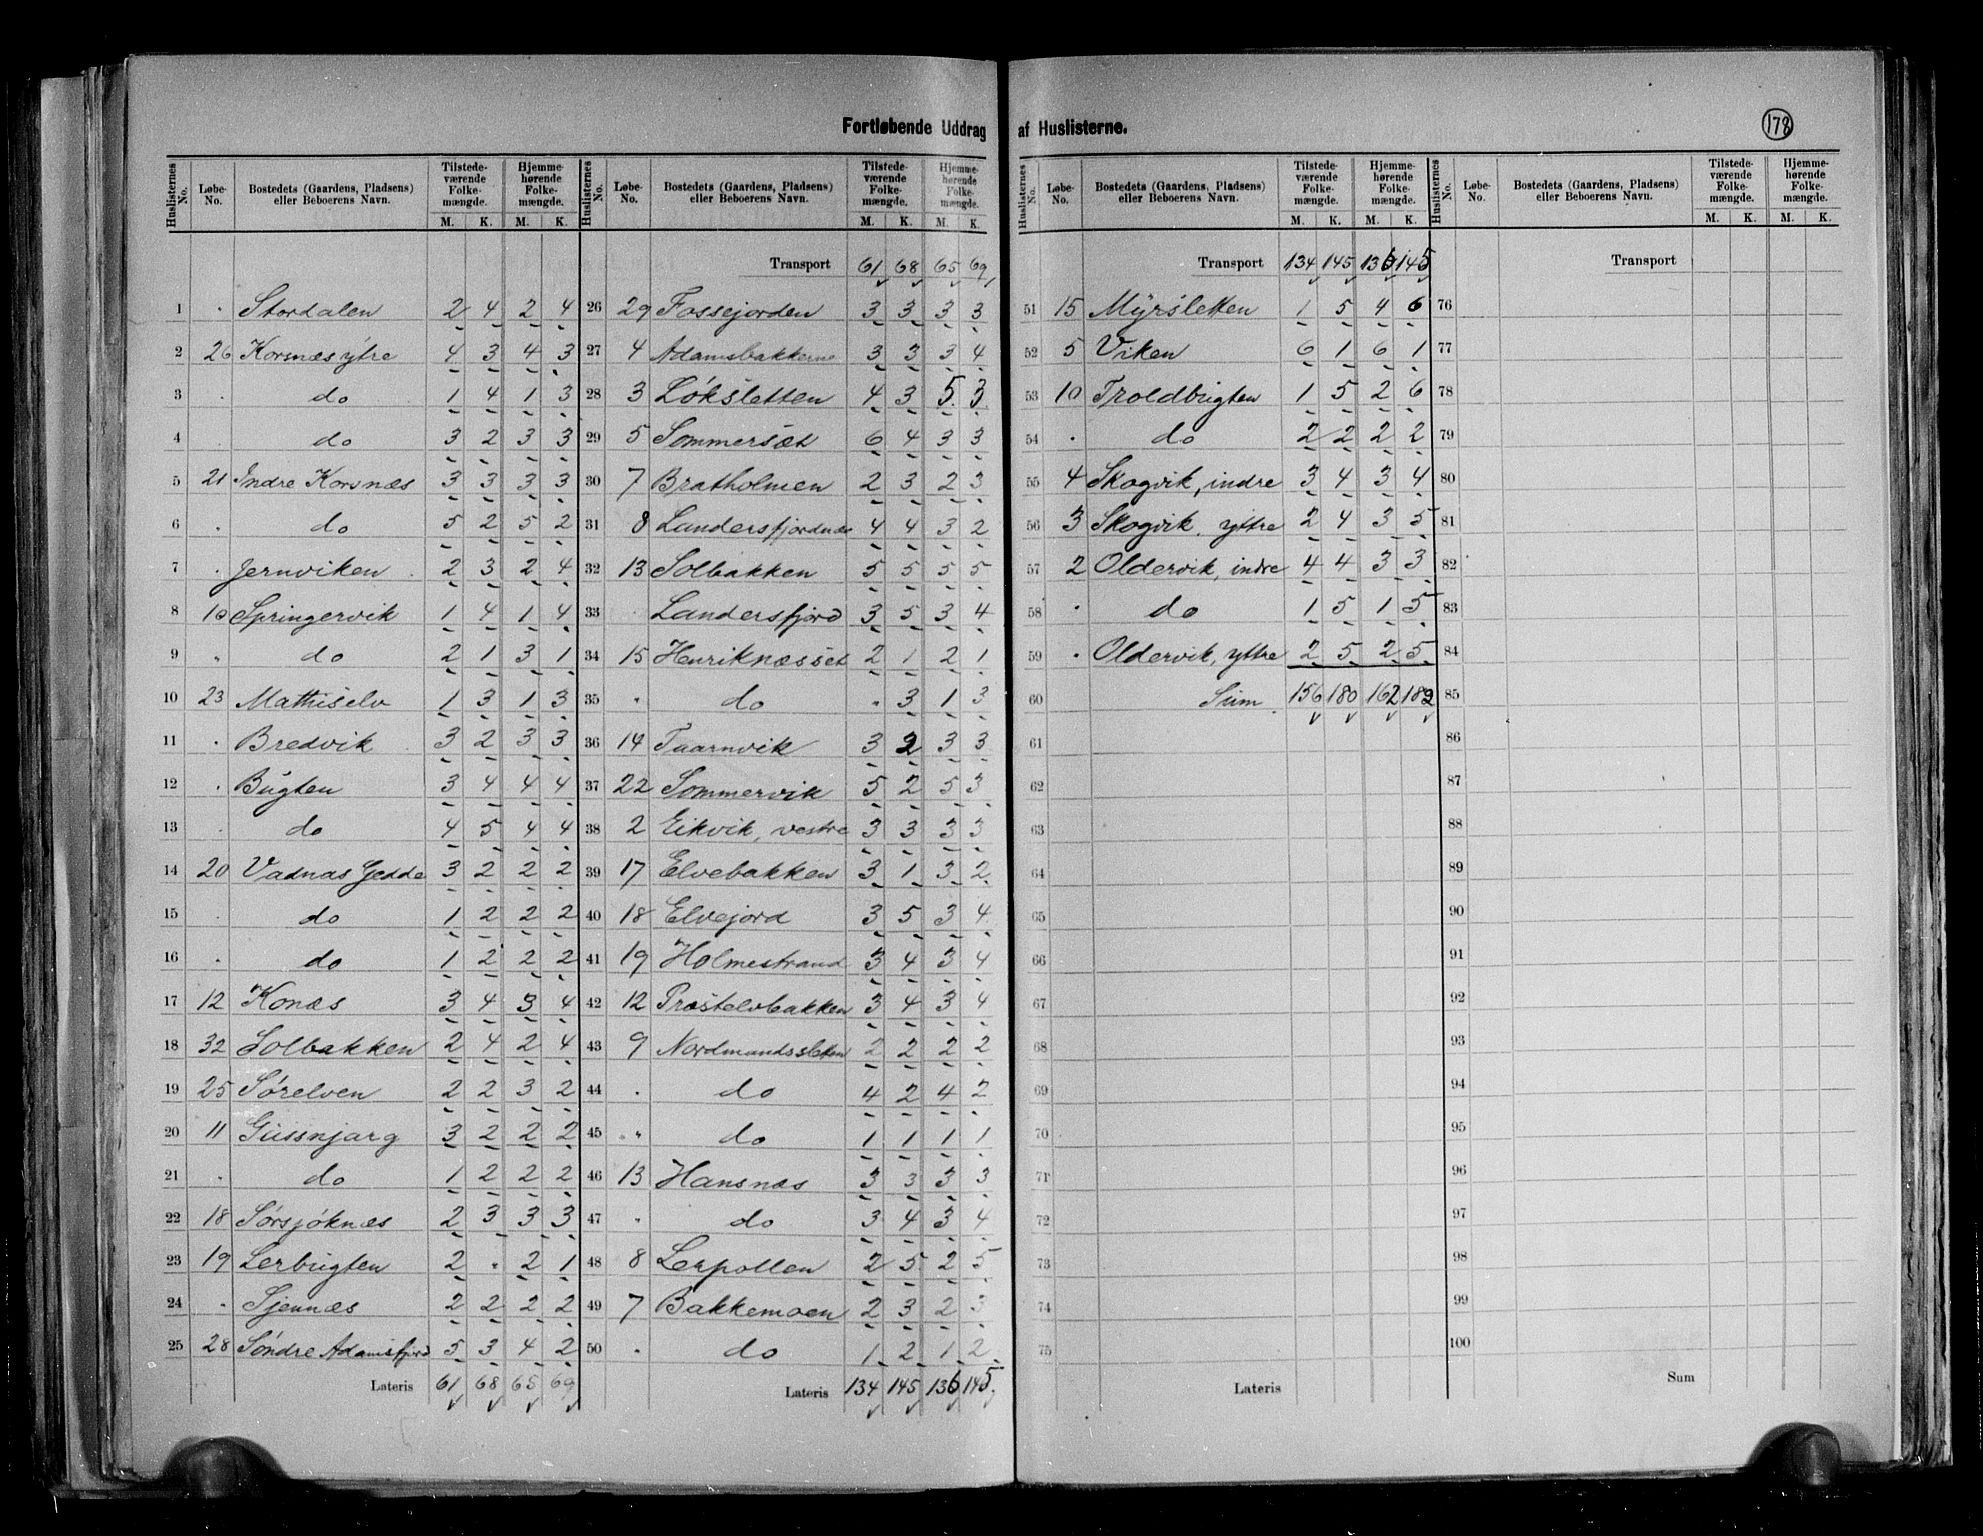 Fortløbende Uddrag af Huslisterne.
178
Huslisternes No. Løbe-No. Bostedets (Gaardens, Pladsens) eller Beboerens Navn. Tilstedeværende Folkemængde. M. K. Hjemmehørende Folkemængde. M. K.
1 . Stordalen 2 4 2 4
2 26 Korsnæs ytre 4 3 4 3
3 . do 1 4 1 3
4 do 3 2 3 3
5 21 Indre Korsnæs 3 3 3 3
6 . do 5 2 5 2
7 . Jernviken 2 3 2 4
8 10 Springervik 1 4 1 4
9 " do 2 1 3 1
10 23 Mathiselv 1 3 1 3
11 . Bredvik 3 2 3 3
12 . Bugten 3 4 4 4
13 . do 4 5 4 4
14 20 Vadnas Gedde 3 2 2 2
15 . do 1 2 2 2
16 . do 1 2 2 2
17 12 Konæs 3 4 3 4
18 32 Solbakken 2 4 2 4
19 25 Sørelven 2 2 3 2
20 11 Gussnjarg 3 2 2 2
21 . do 1 2 2 2
22 18 Sørsjøknæs 2 3 3 3
23 19 Lerbugten 2 " 2 1
24 . Sjennæs 2 2 2 2
25 28 Søndre Adamsfjord 5 3 4 2
Lateris 61 68 65 69
Huslisternes No. Løbe-No. Bostedets (Gaardens, Pladsens) eller Beboerens Navn. Tilstedeværende Folkemængde. M. K. Hjemmehørende Folkemængde. M. K.
Transport 61 68 65 69
26 29 Fossejorden 3 3 3 3
27 4 Adamsbakkerne 3 3 3 4
28 3 Løksletten 4 3 5 3
29 5 Sommersæt 6 4 3 3
30 7 Bratholmen 2 3 2 3
31 8 Landersfjordnæs 4 4 3 2
32 13 Solbakken 5 5 5 5
33 Landersfjord 3 5 3 4
34 15 Henriknæsset 2 1 2 1
35 " do " 3 1 3
36 14 Taarnvik 3 2 3 3
37 22 Sommervik 5 2 5 3
38 2 Eikvik, vestre 3 3 3 3
39 17 Elvebakken 3 1 3 2
40 18 Elvejord 3 5 3 4
41 19 Holmestrand 3 4 3 4
42 12 Præstelvbakken 3 4 3 4
43 9 Nordmandssletten 2 2 2 2
44 . do 4 2 4 2
45 " do 1 1 1 1
46 13 Hansnæs 3 3 3 3
47 " do 3 4 3 4
48 8 Lerpollen 2 5 2 5
49 7 Bakkemoen 2 3 2 3
50 . do 1 2 1 2
Lateris 134 145 136 145
Huslisternes No. Løbe-No. Bostedets (Gaardens, Pladsens) eller Beboerens Navn. Tilstedeværende Folkemængde. M. K. Hjemmehørende Folkemængde. M. K.
Transport 134 145 136 145
51 15 Myrsletten 1 5 4 6
52 5 Viken 6 1 6 1
53 10 Troldbugten 1 5 2 6
54 . do 2 2 2 2
55 4 Skogvik, indre 3 4 3 4
56 3 Skogvik, yttre 2 4 3 5
57 2 Oldervik, indre 4 4 3 3
58 . do 1 5 1 5
59 . Oldervik, yttre 2 5 2 5
60 Sum 156 180 162 182
61
62
63
64
65
66
67
68
69
70
71
72
73
74
75
Lateris
Huslisternes No. Løbe-No. Bostedets (Gaardens, Pladsens) eller Beboerens Navn. Tilstedeværende Folkemængde. M. K. Hjemmehørende Folkemængde. M. K.
Transport
76
77
78
79
80
81
82
83
84
85
86
87
88
89
90
91
92
93
94
95
96
97
98
99
100
Sum